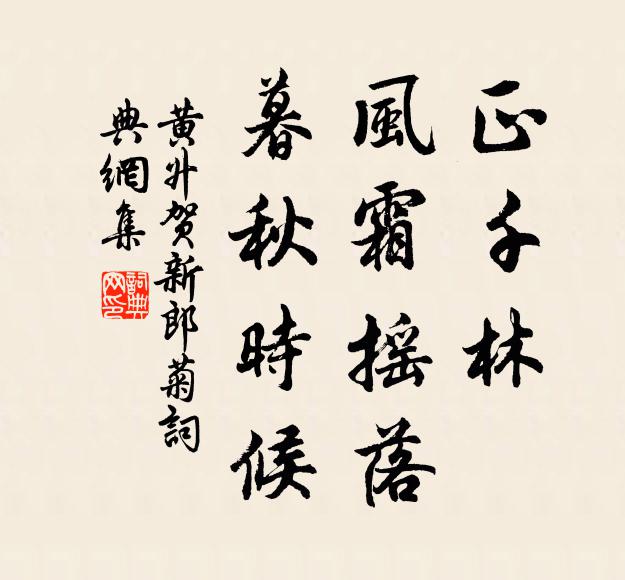 正千林
風霜摇落
暮秋時候
黄升贺新郎菊詞
典網集
詞典网印